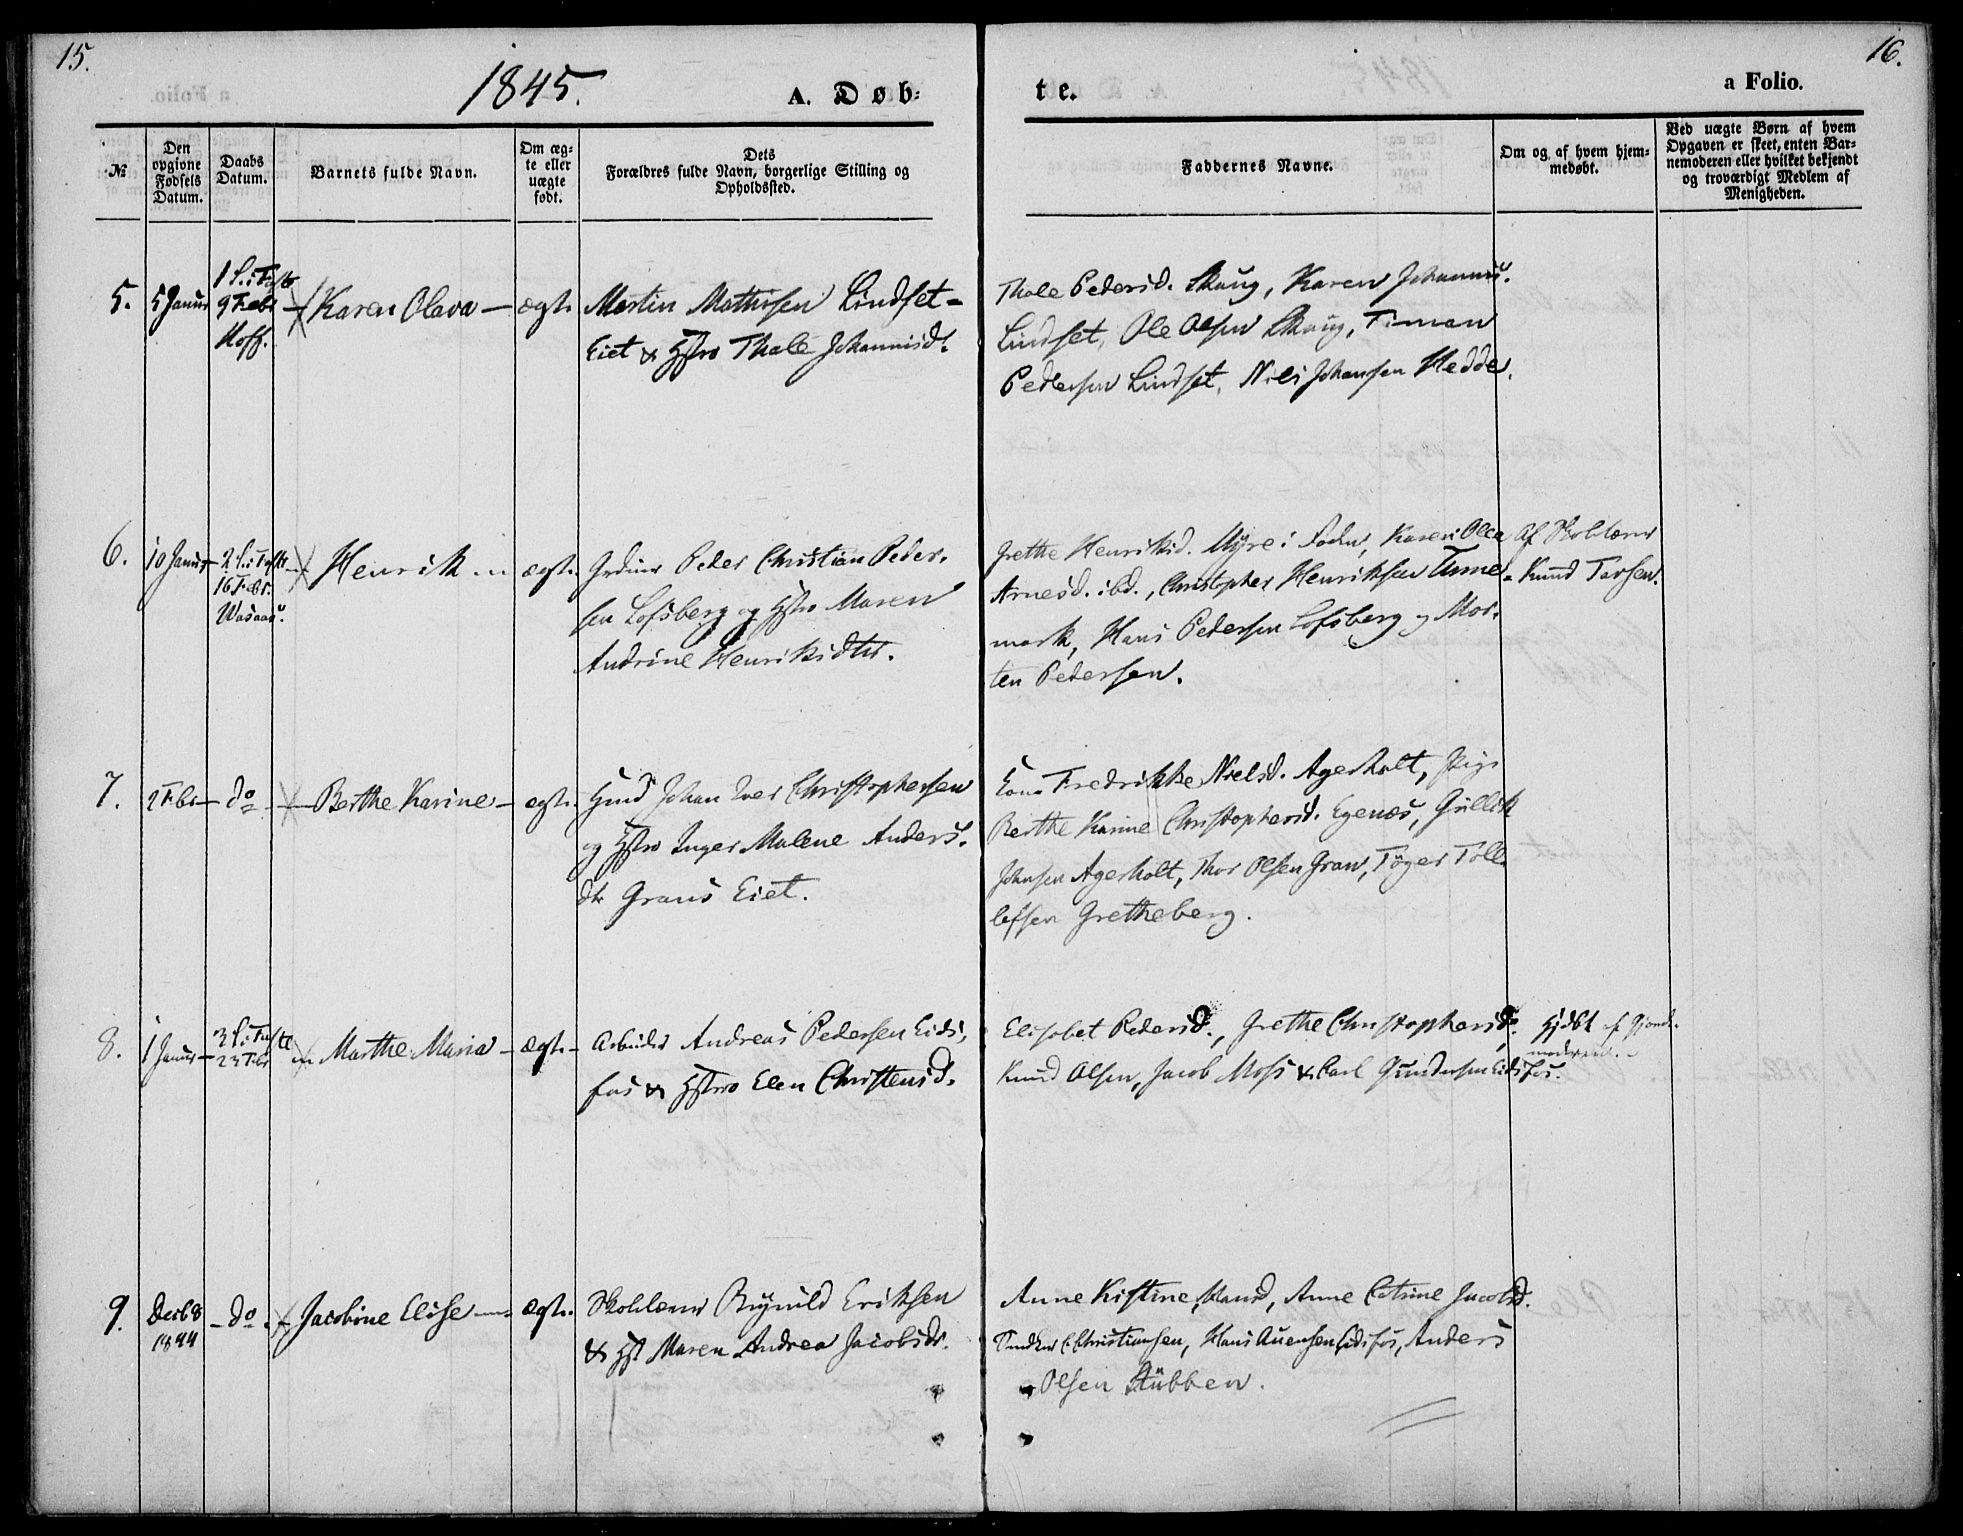 15.
16.
1845.
A. Døb-
te.
a Folio.
№
Den opgivne Fødsels Datum.
Daabs Datum.
Barnets fulde Navn.
Om ægte eller uægte født.
Dets Forældres fulde Navn, borgerlige Stilling og Opholdssted.
Faddernes Navne.
Om og af hvem hjemmedøbt.
Ved uægte Børn af hvem Opgaven er skeet, enten Barnemoderen eller hvilket bekjendt og troværdigt Medlem af Menigheden.
5.
5 Januar
1 S. i Faste
9 Febr
Hoff.
Karen Olava
ægte
Martin Mathisen Lindset-
Eiet & Hstro Thale Johannisd.
Thale Pedersd. Skaug, Karen Johannis.
Lindset, Ole Olsen Skaug, Timan
Pedersen Lindset, Niels Johansen Hedde.
6.
10 Januar
2 S. i Faste
16 Febr.
Wasaas.
Henrik
ægte
Grdmr Peder Christian Peder-
sen Lofsberg og Hstro Maren
Andrine Henriksdtr.
Grethe Henriksd. Myre i Soden, Karen Olea
Arnesd. ibd., Christopher Henriksen Teme-
mark, Hans Pedersen Lofsberg og Mor-
ten Pedersen.
Af Skolelærer
Knud Torsen.
7.
2 Febr
do
Berthe Karine
ægte
Hmd Johan Iver Christophersen
og Hstro Inger Malene Anders.
dtr Grans Eiet.
Kone Fredrikke Nielsd. Agerholt, Pige
Berthe Karine Christophersd. Egenæs, Gullik
Johnsen Agerholt, Thor Olsen Gran, Töger Toll-
lefsen Grettheberg.
8.
1 Januar
3 S. i Faste
23 Febr
Marthe Maria
ægte
Arbeider Andreas Pedersen Eids-
fos & Hstro Elen Christensd.
Elisabet Pedersd., Grethe Christophersd.
Knud Olsen, Jacob Moss & Carl Gundersen Eidsfos.
Hjdbt af Gjorde-
moderen.
9.
Decbr 8
1844
do
Jacobine Elise
ægte
Skolelærer Rignild Eriksen
& Hst Maren Andrea Jacobsdr.
Anne Kistine Hansd, Anne Catrine Jacobsd.
Christiansen, Hans Auensen Eidsfos, Anders
Olsen Stübben.